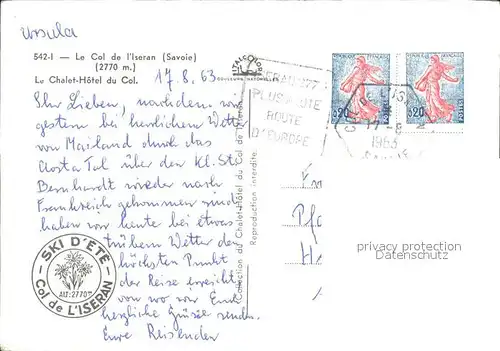 Ursula
542-I — Le Col de l'Iseran (Savoie)
(2770 m.)
Le Chalet-Hôtel du Col.
17.8.63
Ihr Lieben, nachdem wir
gestern bei herrlichem Wetter
von Mailand durch das
Aosta Tal über den Kl. St.
Bernhardt wieder nach
Frankreich gekommen sind
haben wir heute bei etwas
trübem Wetter den
höchsten Punkt
der Reise erreicht
von wo wir Euch
herzliche Grüsse senden.
Eure Reisenden
SKI D'ÉTÉ
ALT: 2770m
Col de L'ISERAN
Collection du Chalet-Hôtel du Col de l'Iseran
Reproduction interdite.
PLUS HAUTE
ROUTE
D'EUROPE
0,20
POSTES
0,20
POSTES
17-8
1963
SAVOIE
Pf
H
privacy protection
Datenschutz